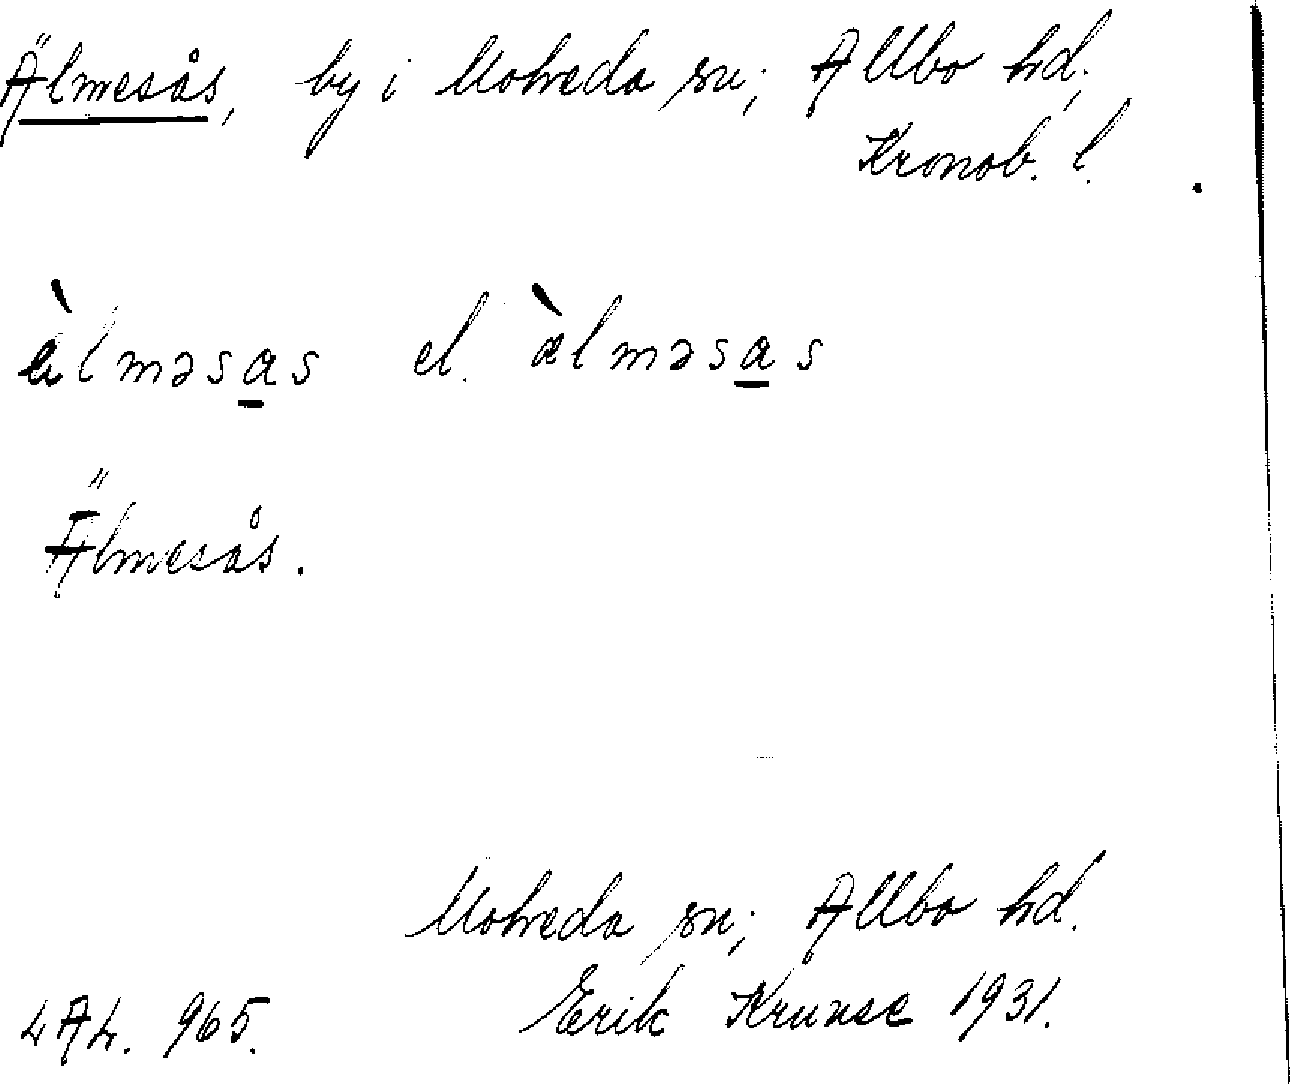 Älmesås, by i Moheda sn; Allbo hd,
Kronob. l.
àlməsas el. æ̀lməsas
Älmesås.
Moheda sn; Allbo hd.
LAL. 965. Erik Krunse 1931.